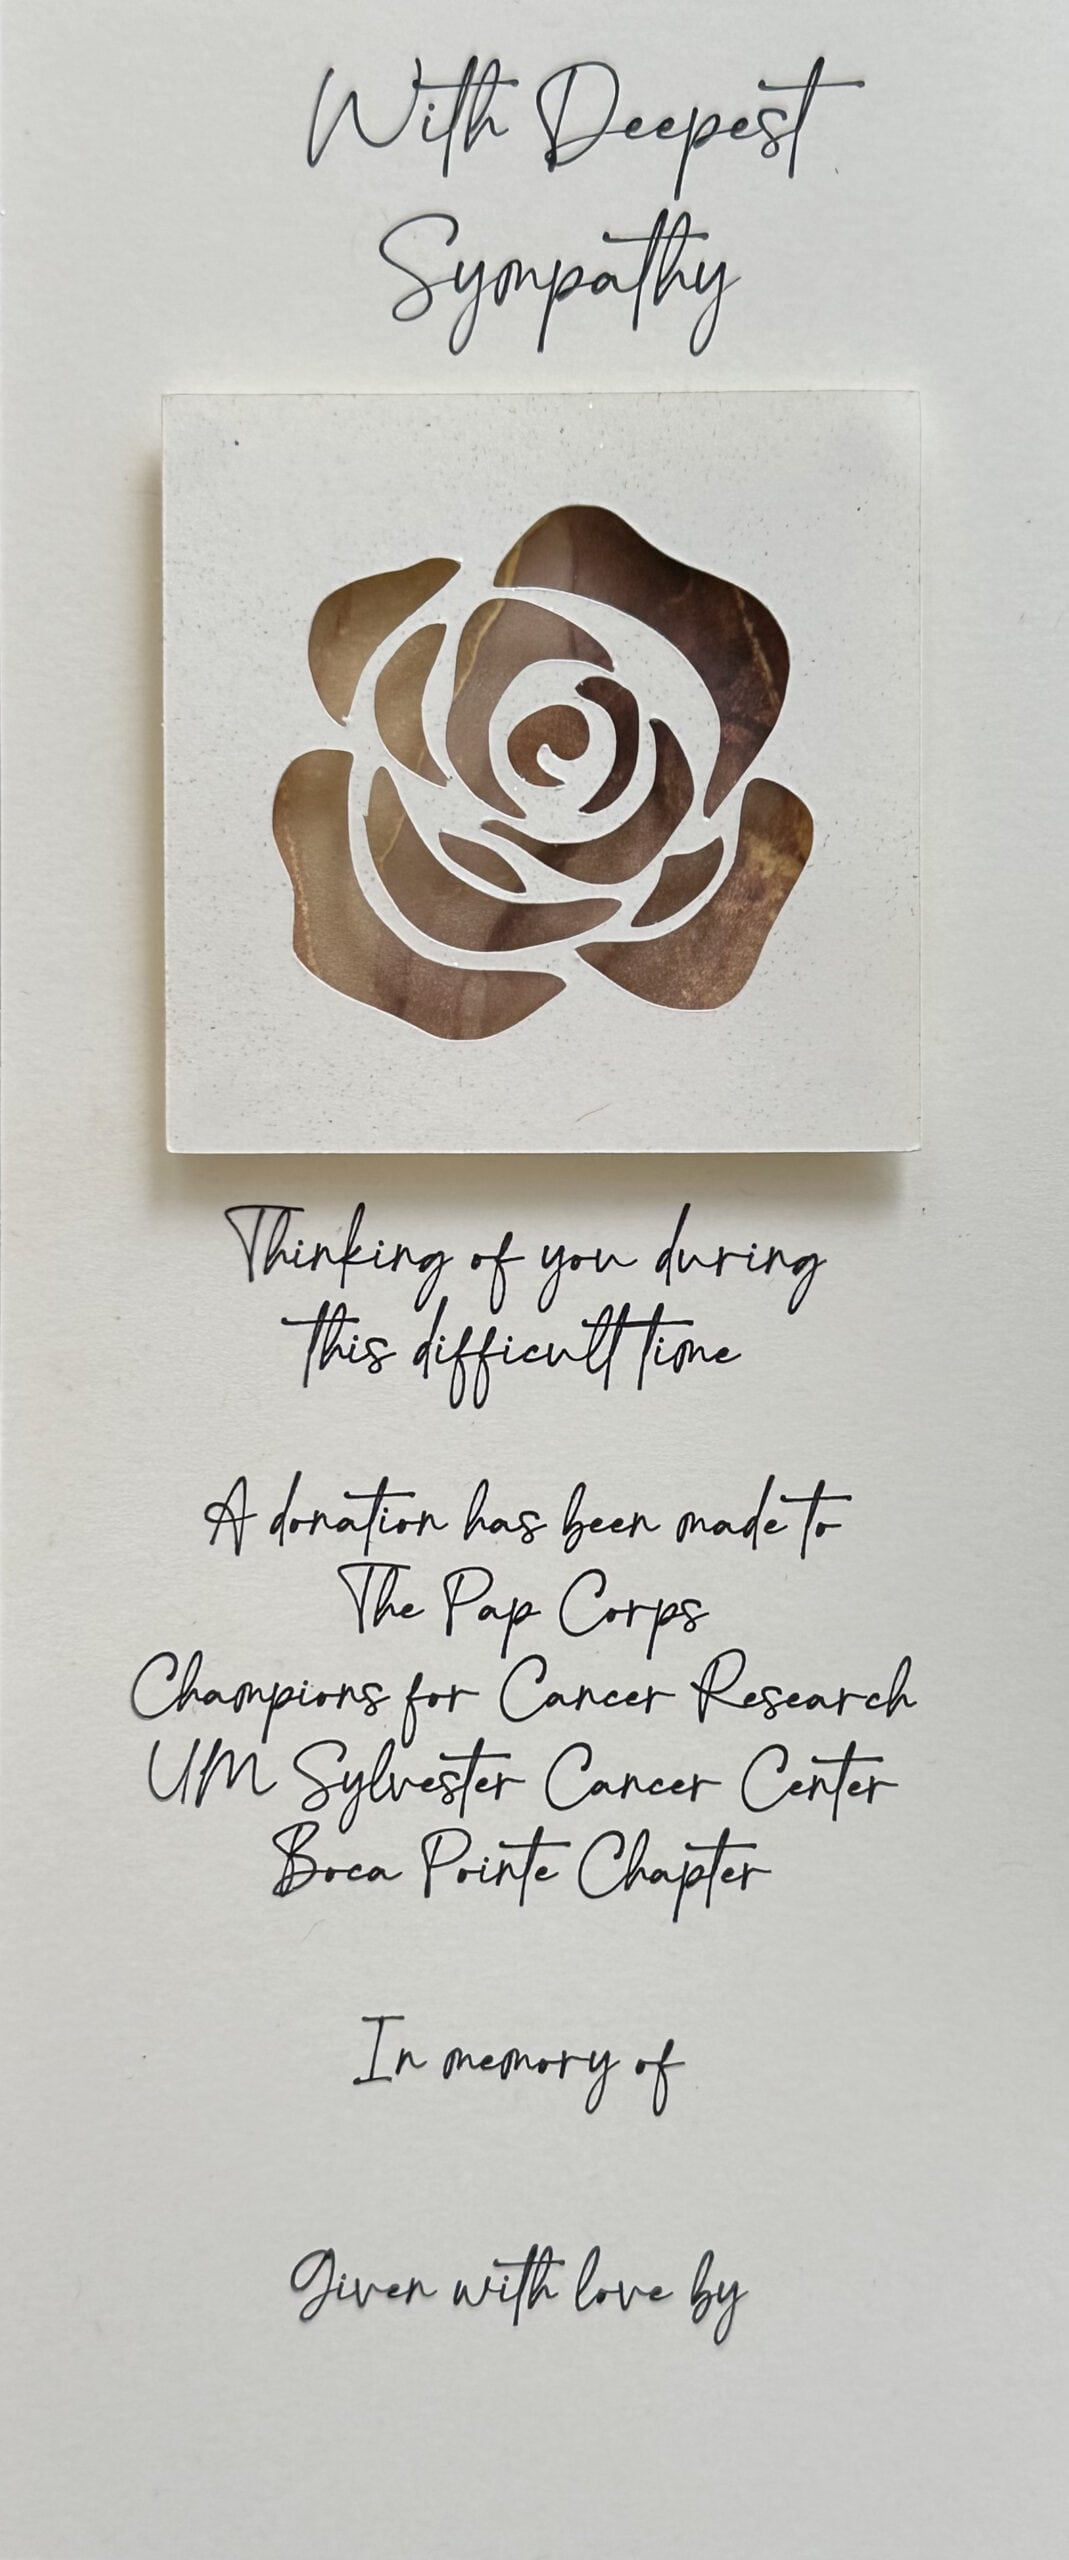 With Deepest
Sympathy
Thinking of you during
this difficult time
A donation has been made to
The Pap Corps
Champions for Cancer Research
UM Sylvester Cancer Center
Boca Pointe Chapter
In memory of
Given with love by